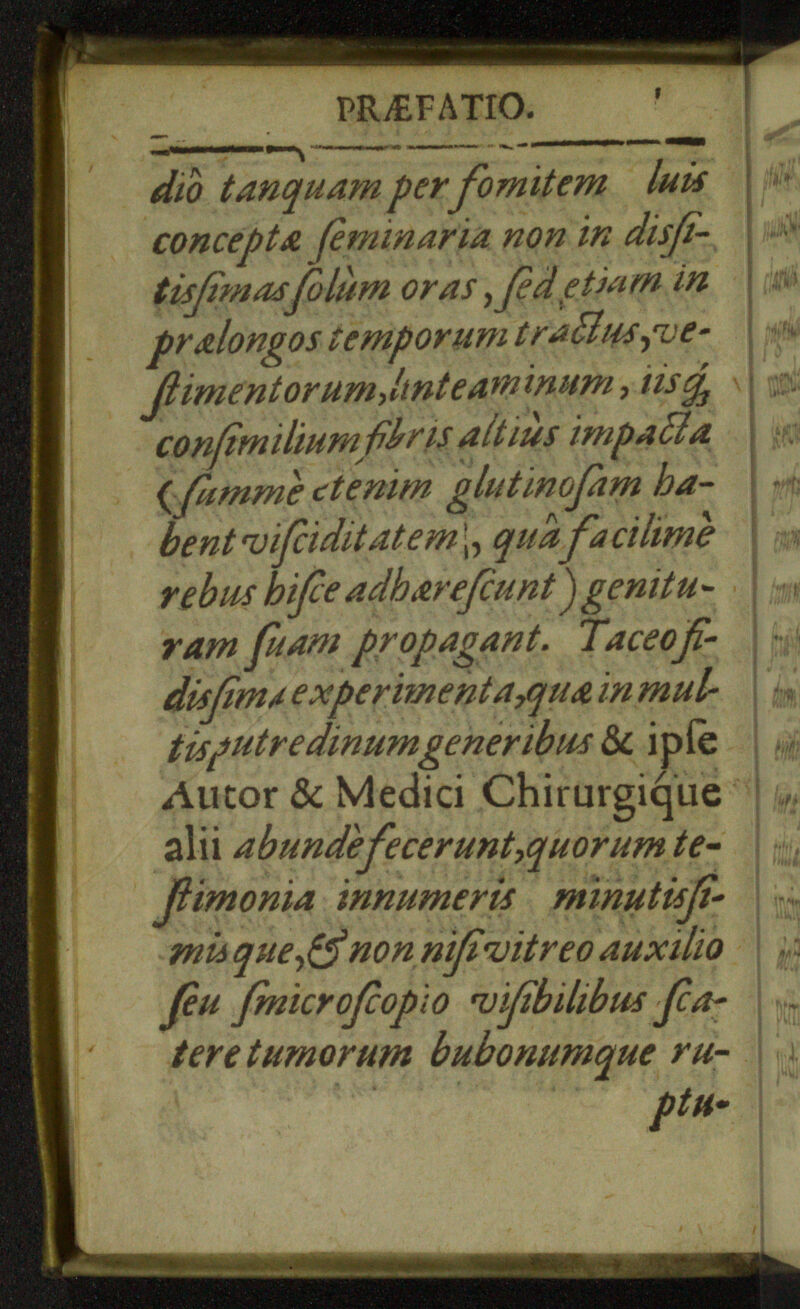 PRÆFATIO.
diò tanquam per fomitem luis
conceptæ ſeminaria non in disſi-
tisſimas ſolùm oras, ſed etiam in
prælongos temporum tractus, ve-
ſtimentorum, linteaminum, iisq́;
conſimilium fibris altiùs impacta
(ſummè etenim glutinoſam ha-
bent viſciditatem, quâ facilimè
rebus hiſce adhæreſcunt) genitu-
ram ſuam propagant. Taceo fi-
disſima experimenta, quæ in mul-
tis putredinum generibus & ipſe
Autor & Medici Chirurgiq́ue
alii abundè fecerunt, quorum te-
ſtimonia innumeris minutisſi-
misque, & non niſi vitreo auxilio
ſeu ſmicroſcopio viſibilibus ſca-
tere tumorum bubonumque ru-
ptu-